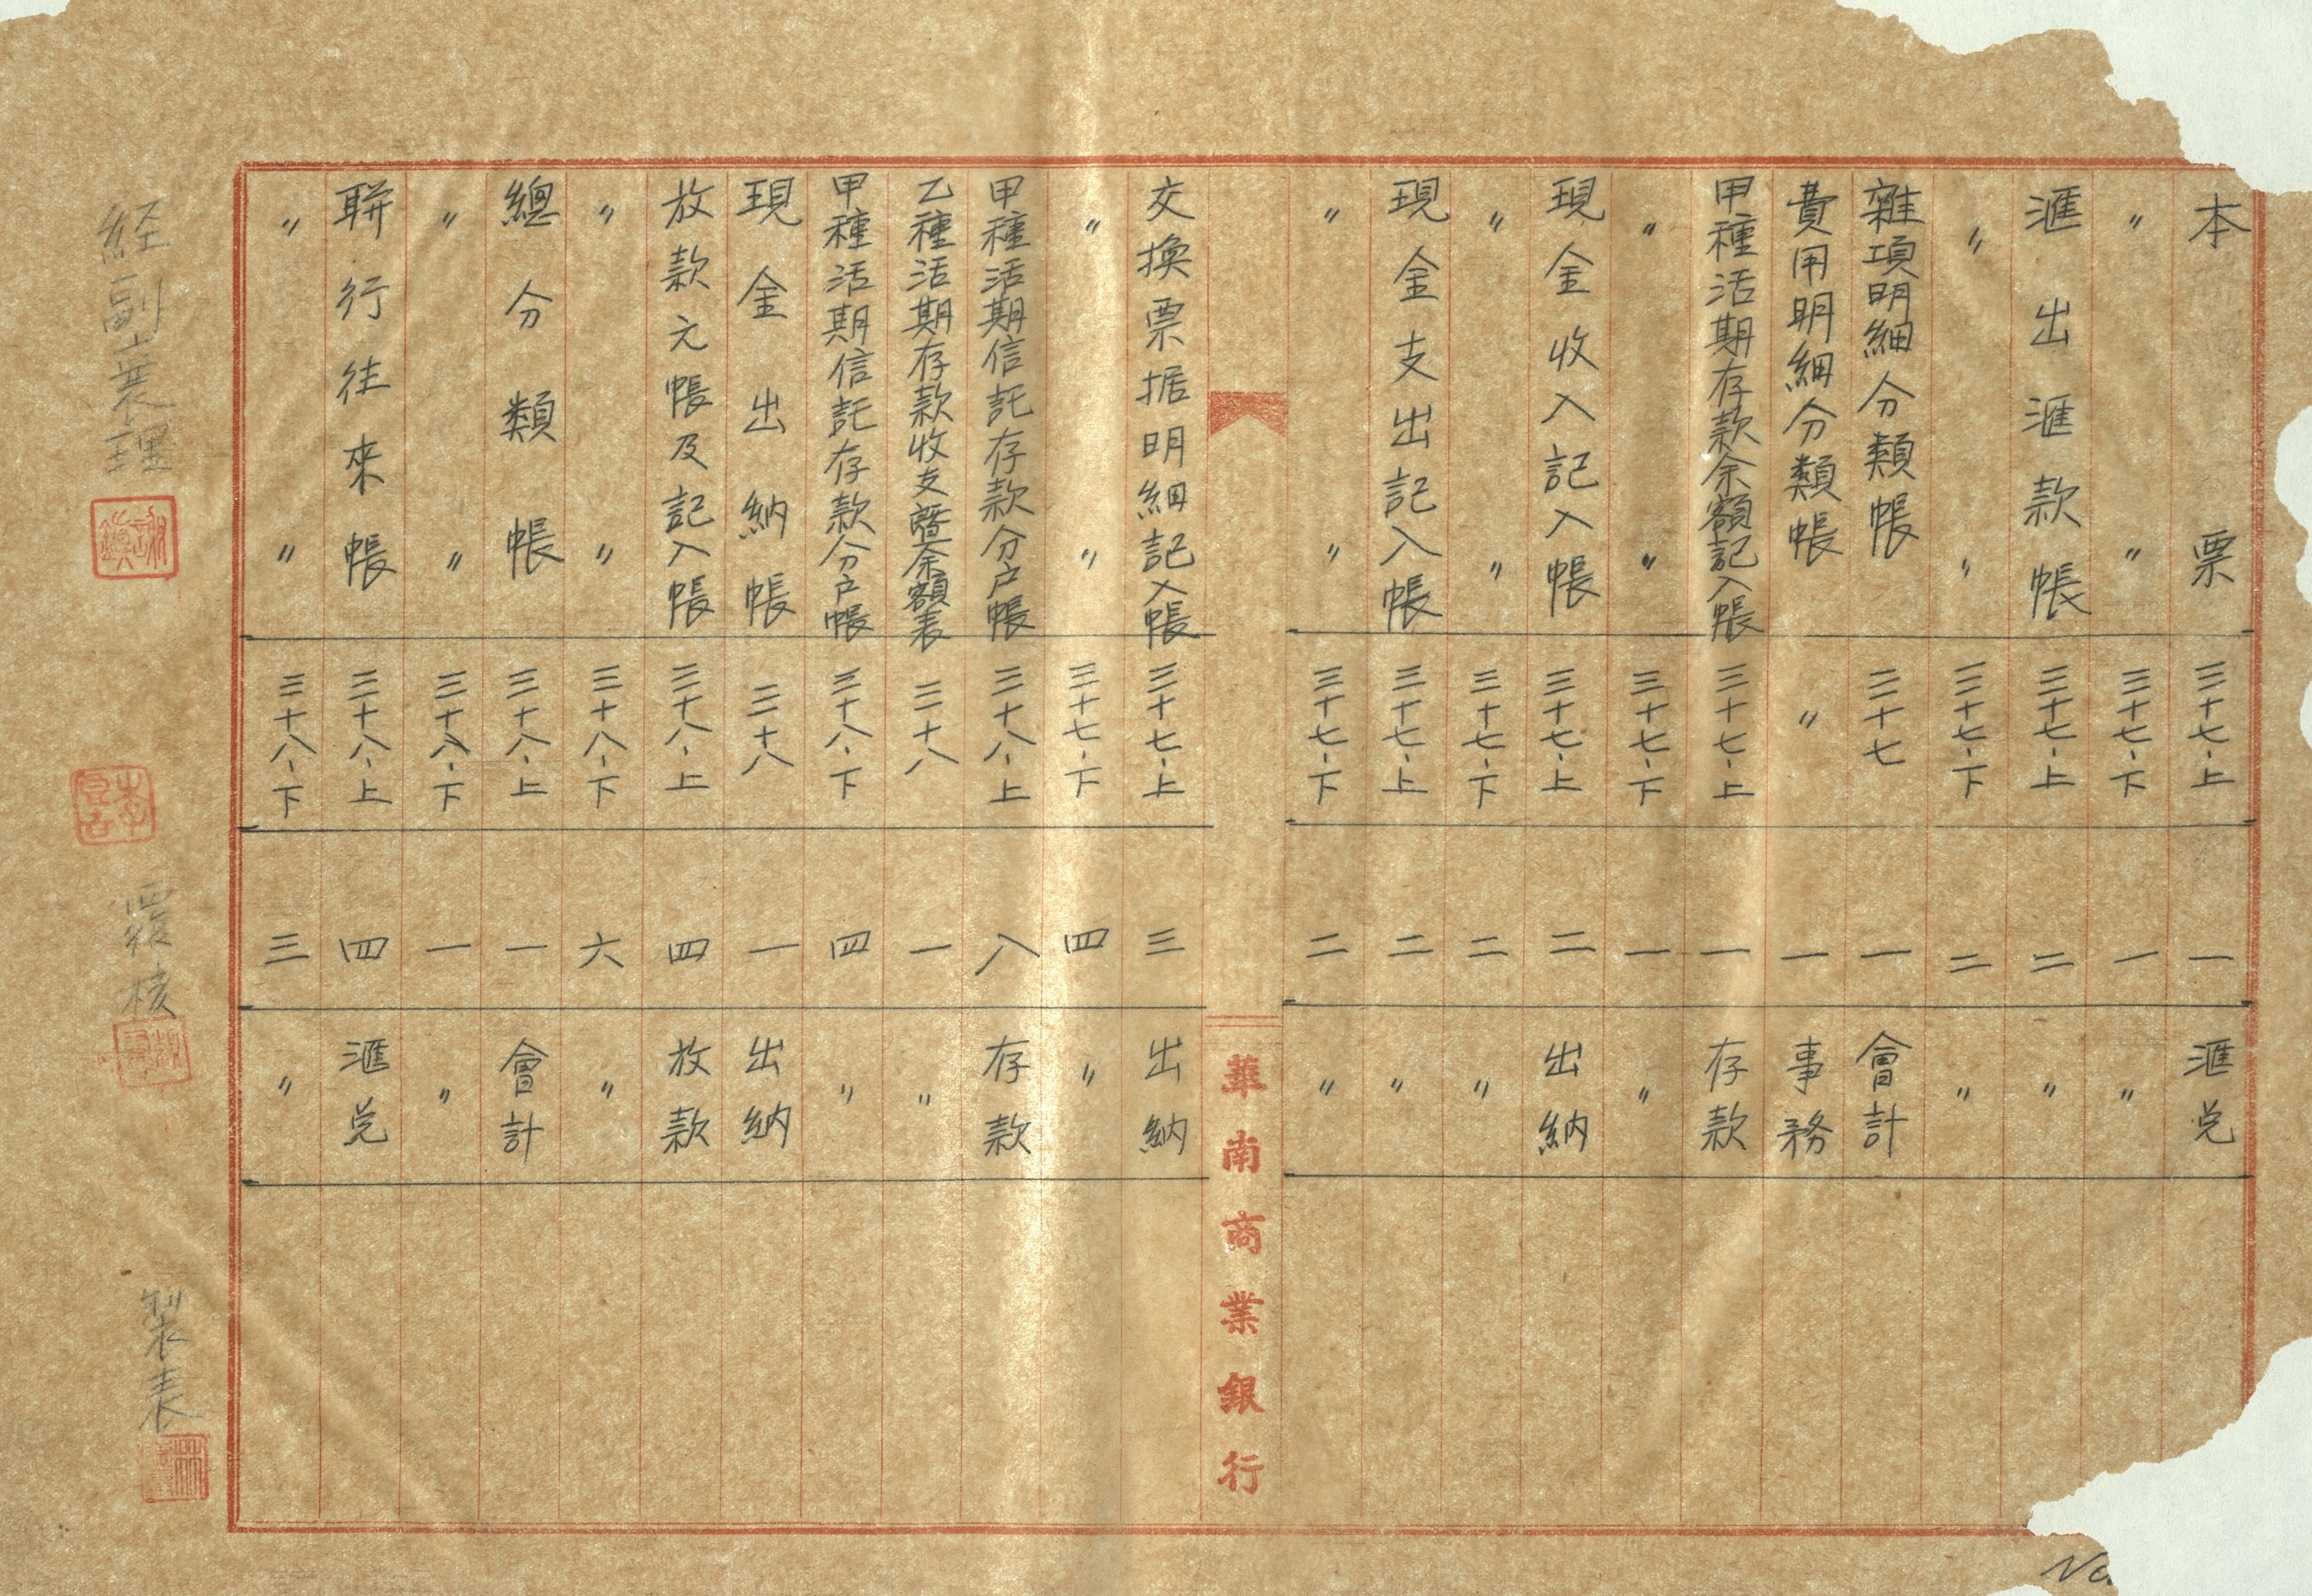 本票 三十七、上 一 滙兌
〃 〃 三十七、下 一 〃
滙出滙款帳 三十七、上 二 〃
〃 〃 三十七、下 二 〃
雜項明細分類帳 三十七 一 會計
費用明細分類帳 〃 一 事務
甲種活期存款余額記入帳 三十七、上 一 存款
〃 〃 三十七、下 一 〃
現金收入記入帳 三十七、上 二 出納
〃 〃 三十七、下 二 〃
現金支出記入帳 三十七、上 二 〃
〃 〃 三十七、下 二 〃
華南商業銀行
交換票据明細記入帳 三十七、上 三 出納
〃 〃 三十七、下 四 〃
甲種活期信託存款分户帳 三十八、上 八 存款
乙種活期存款收支暨余額表 三十八 一 〃
甲種活期信託存款分户帳 三十八、下 四 〃
現金出納帳 三十八 一 出納
放款元帳及記入帳 三十八、上 四 放款
〃 〃 三十八、下 六 〃
總分類帳 三十八、上 一 會計
〃 〃 三十八、下 一 〃
聯行往來帳 三十八、上 四 滙兌
〃 〃 三十八、下 三 〃
経副襄理 覆核 製表
No.